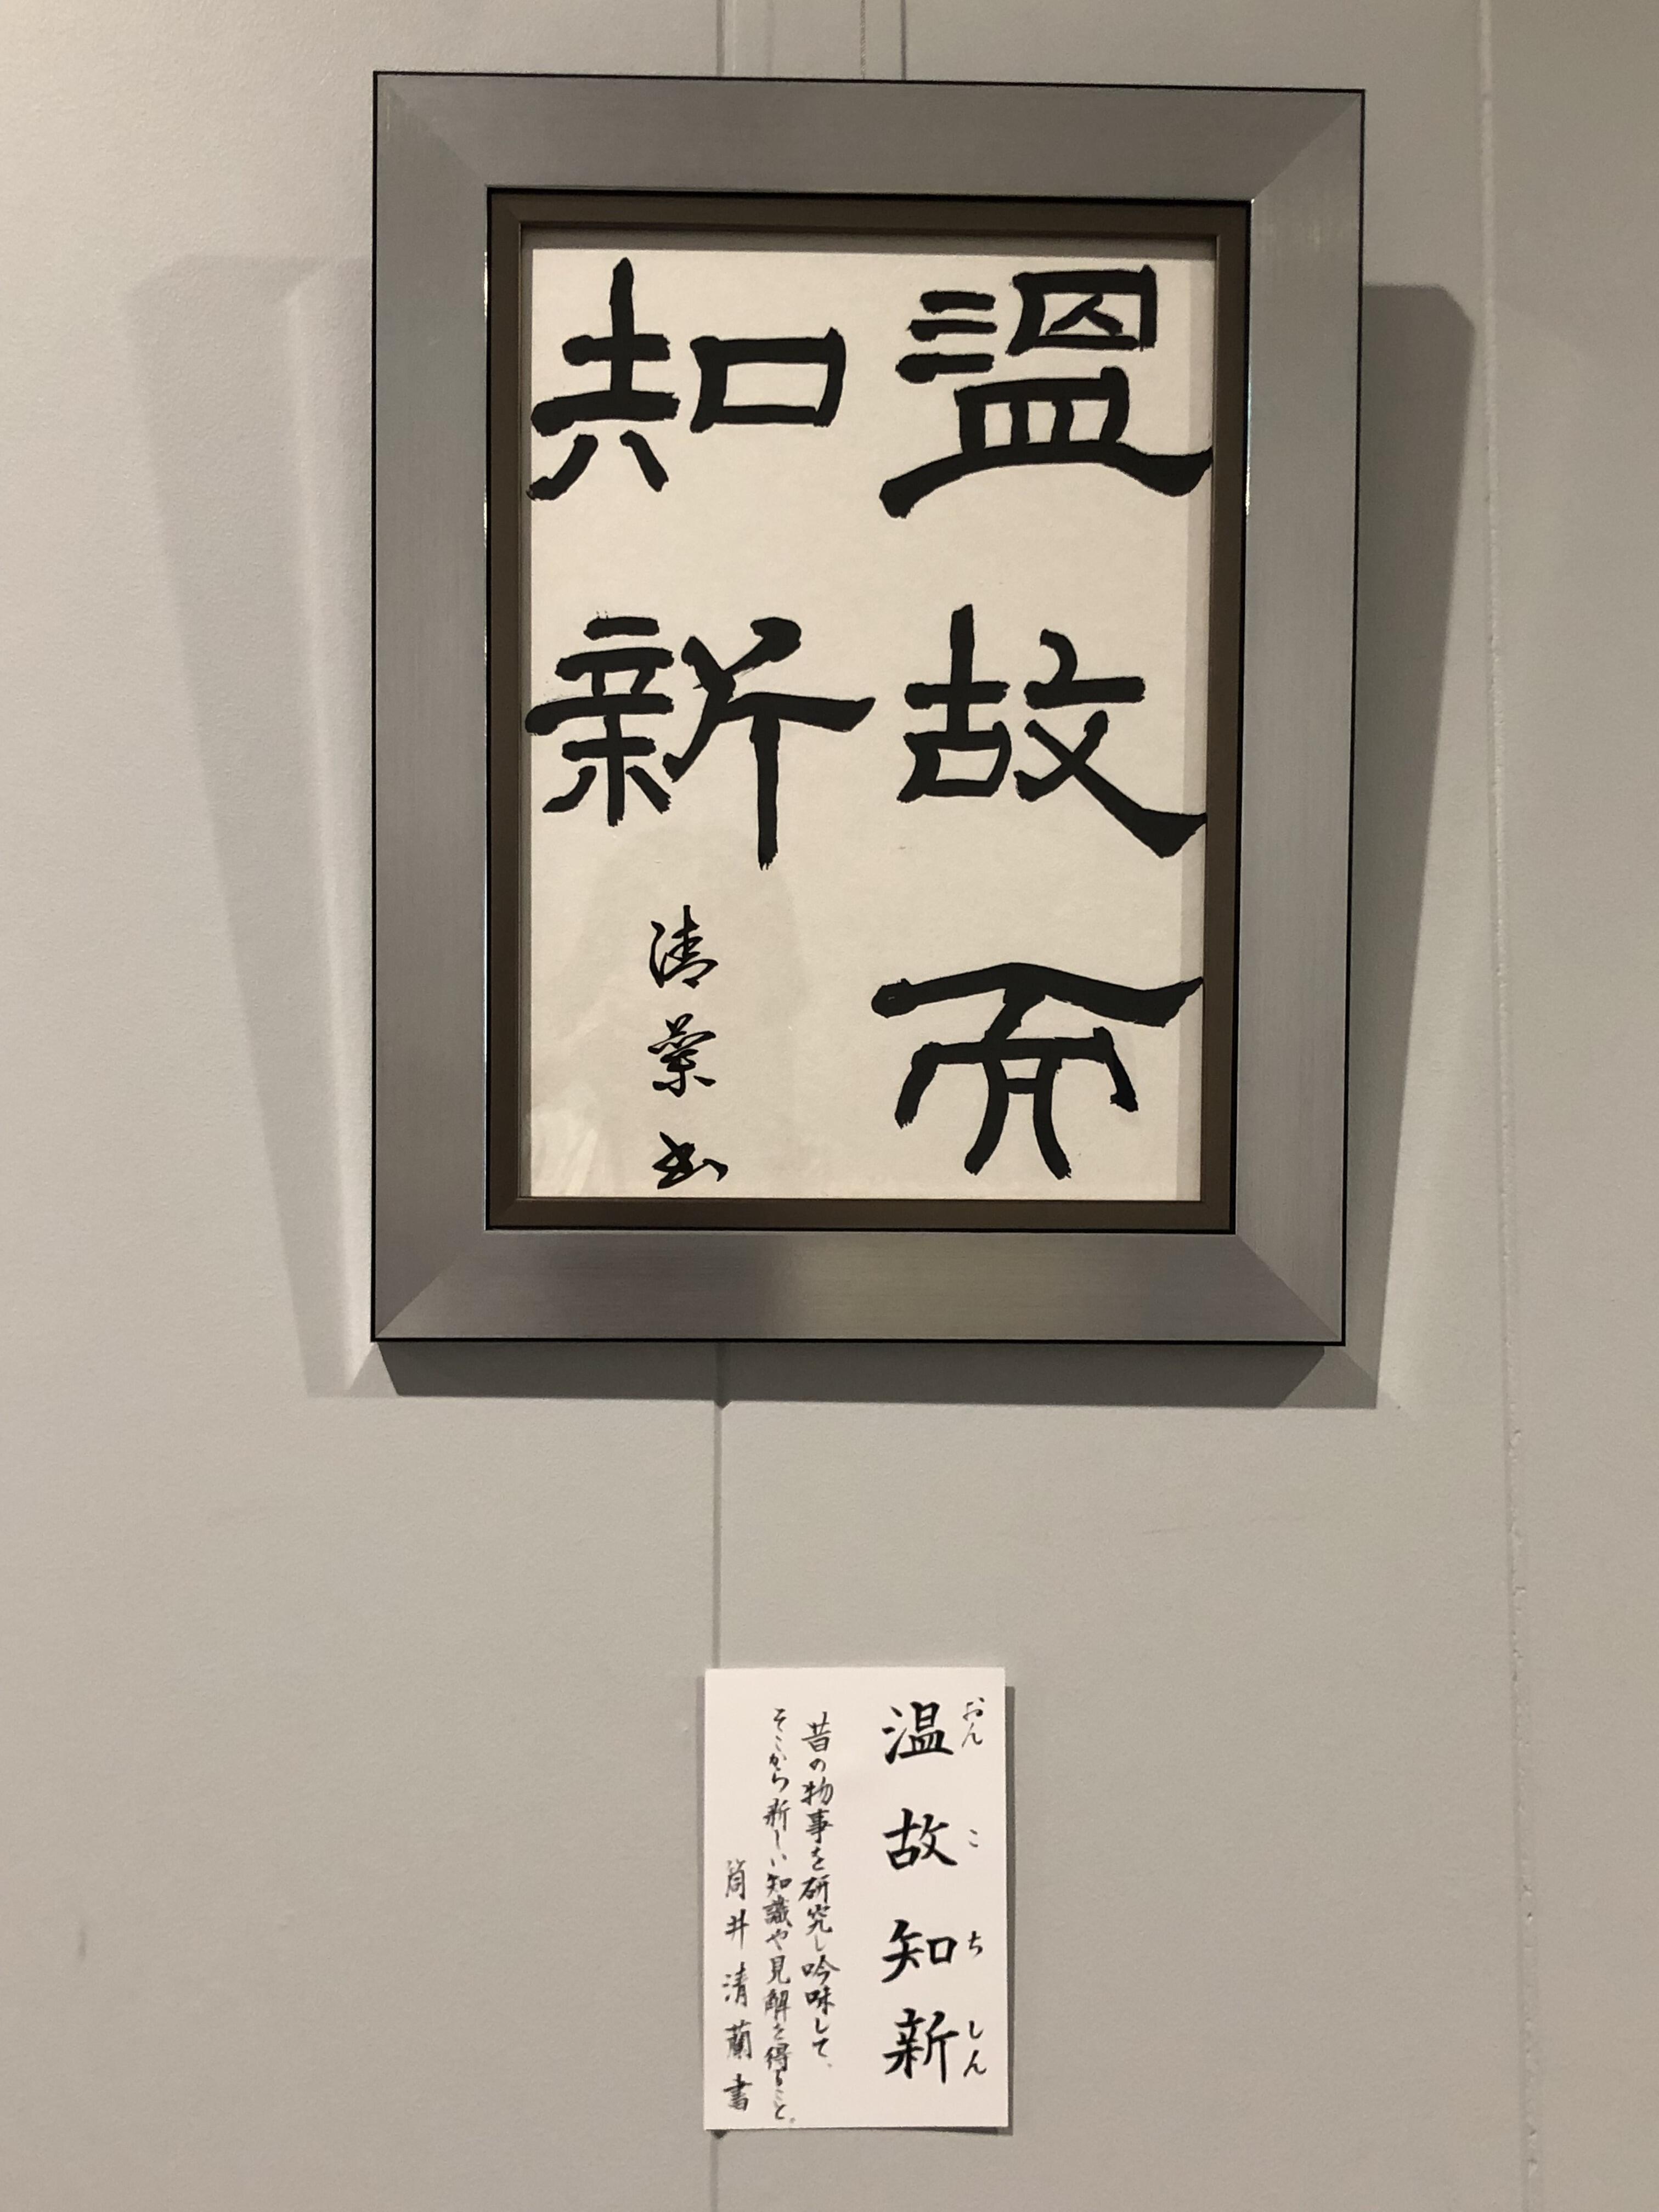 溫故而
知新
清蘭書
温故知新
おんこちしん
昔の物事を研究し吟味して、
そこから新しい知識や見解を得ること。
筒井清蘭書